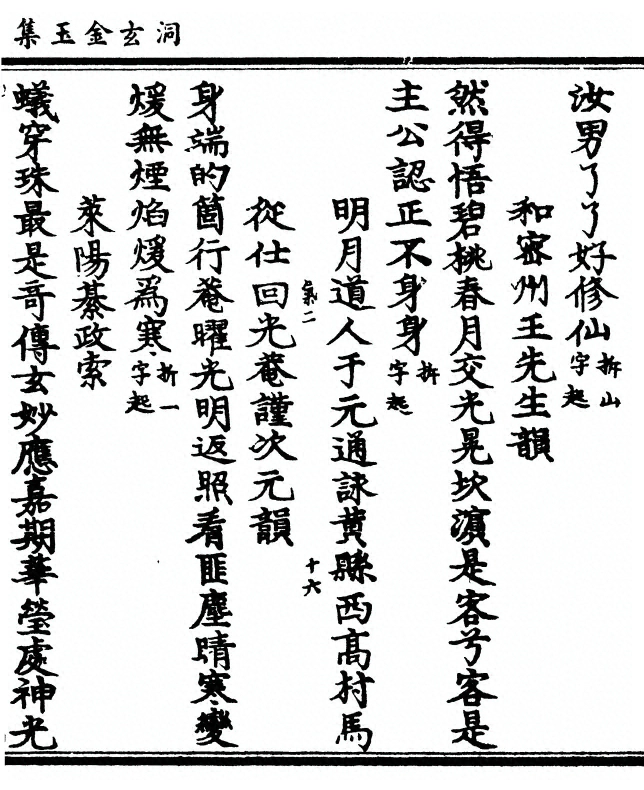 洞玄金玉集
汝男了了好修仙拆山字起
和密州王先生韻
然得悟碧桃春月交光晃坎濵是客兮客是
主公認正不身身拆字起
明月道人于元通詠黄縣西高村馬
氣二 十六
從仕回光菴謹次元韻
身端的箇行菴曜光明返照看匪塵睛寒變
煖無煙焰煖爲寒拆一字起
萊陽綦政索
蟻穿珠最是奇傳玄妙應嘉期華瑩處神光